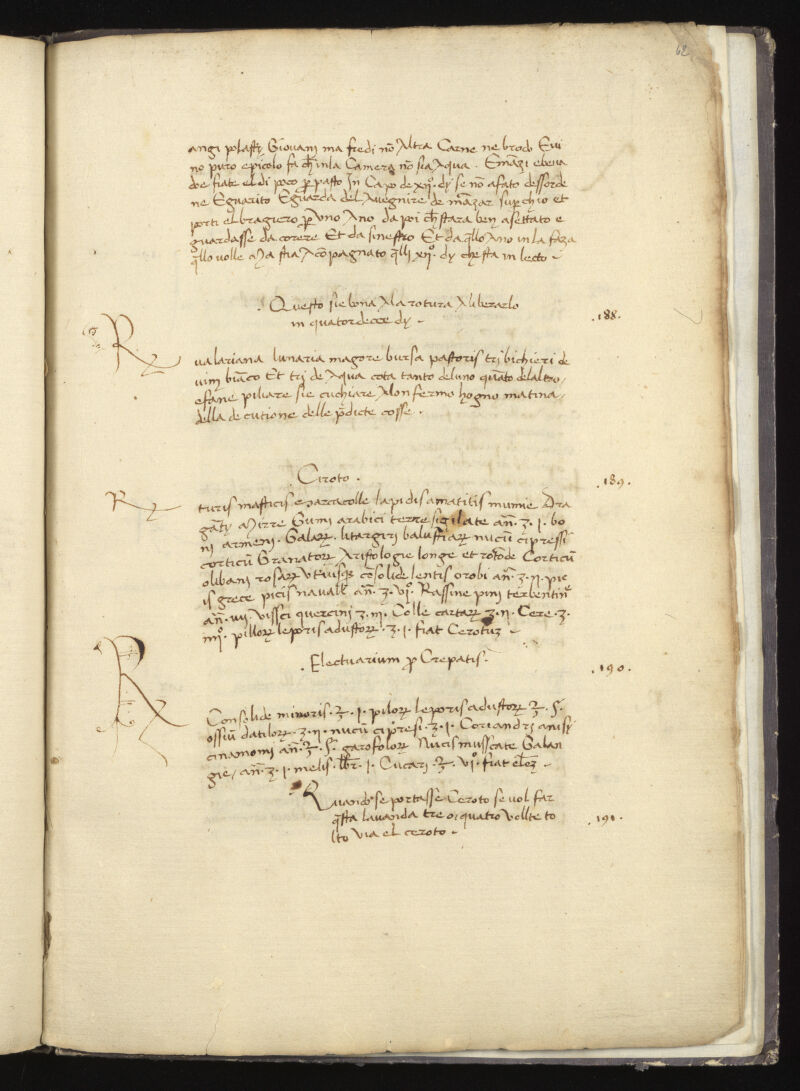 62
angi polastrj Giovani ma fredi nõ Altra Carne ne brodo E vi
no puro e picolo fa ch̃ in la Camera nõ sia Aqua . E mãzi e beva
doe fiate el di poco p pasto In Capo de xijº. dy se nõ a fato dessorde
ne E guarito E guarda del Avegnire de mãzar superchio et
porti el bragiero p uno Ano da poi ch̃ stara ben asettato e
guardasse da corere Et da sinestro Et da q̃llo Ano in la faza
q̃llo volle Ma stia Acõpagnato q̃lli xijº. dy che sta in lecto ~
. Questo sie bona A la rotura A liberarlo
in quatordece dy ~
.188.
R valariana lunaria magore bursa pastoris trj bichieri de
vim biãco Et trj de Aqua cota tanto de luno quãto delaltro,
efane piliare sie cuchiare Alonfermo hogno matina,
della decutione delle p̃dicte cosse .
Ciroto .
.189.
R turis masticis sarcacolle lapidis amatitis mumie Dra
gãtj Mirre Gumi arabici terre sigilate añ. ʒ. 1. bo
li armeni . Galar . litargirj balustiar nucũ cipressi
corticũ Granator Aristologie longe et rotõde Corticũ
olibani rosar utriusq̃ cõsolide lentis orobi añ. ʒ. ij. pic
is grece picis navalĩ añ. ʒ. vjº. Rassine pini terbentinẽ
añ. vij vissci quercini ʒ. iij. Colle cartar ʒ. ij. Cere ʒ.
iiijº. pillor leporis adustor . ʒ. 1. fiat Cerotuʒ ~
. Electuarium p Crepatis .
. 190.
R Consolide minoris . ʒ. 1. pilor leporis adustor ʒ. ß.
ossiũ datilor . ʒ. ij. nucũ cipresi . ʒ. 1. Coriandrj anisj
cinamomi añ. ʒ. ß. garofolor Nucis musscate Galan
gie, añ. ʒ. 1. melis . lbr. 1. Cucarj . ʒ. vj. fiat elc̃ʒ ~
Quando se portasse Ceroto se vol far
q̃sta lavanda tre o quatro vollte to
lto via el ceroto ~
. 191 .